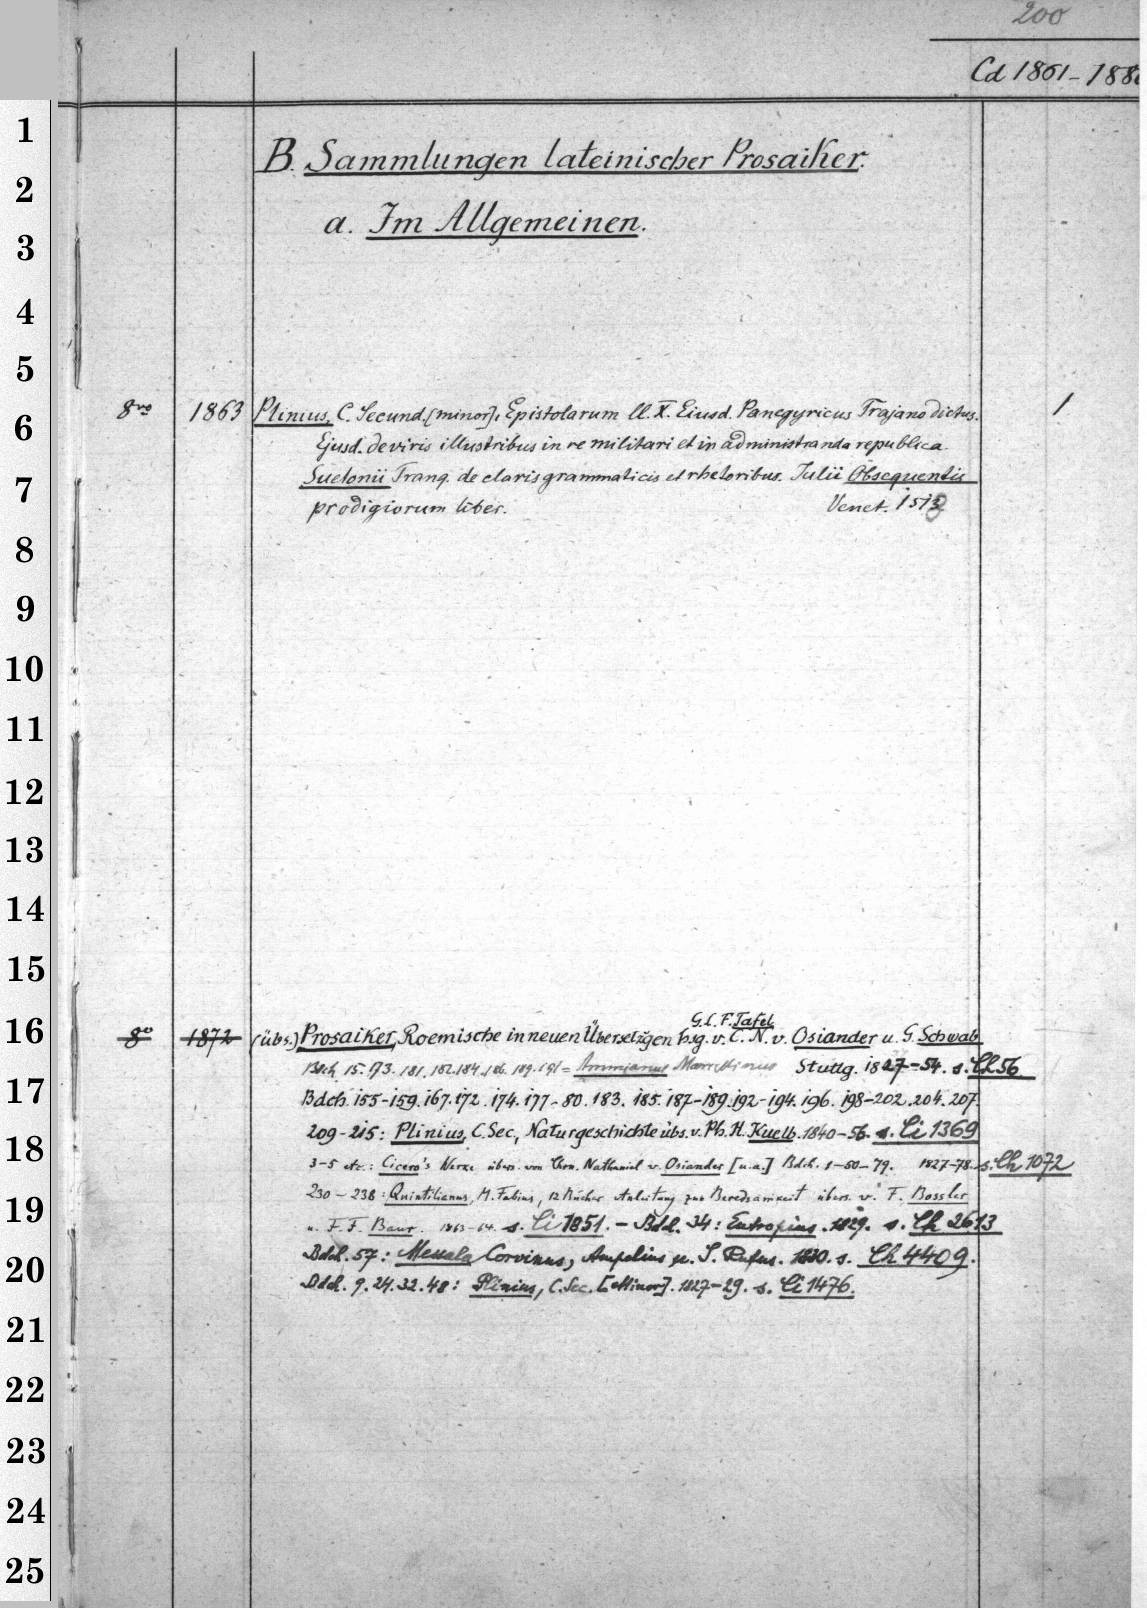 200
Cd 1861-188
1
B. Sammlungen lateinischer Prosaiker.
2
a. Im Allgemeinen.
3
4
5
8vo 1863 Plinius, C. Secund. [minor], Epistolarum ll. X. Eiusd. Panegyricus Trajano dictus. 1
6
Ejusd. de viris illustribus in re militari et in administranda republica
7
Suetonii Tranq. de claris grammaticis et rhetoribus. Julii Obsequentis
prodigiorum liber. Venet. 1518
8
9
10
11
12
13
14
15
G.L.F. Tafel,
16
8o 1872 (übs.) Prosaiker, Roemische in neuen Übersetzgen hsg. v. C. N. v. Osiander u. G. Schwab
Bdch. 15. 173. 181. 182. 184. 186. 189. 191 = Ammianus Marcellinus Stuttg. 1827-54. s. Ch 56
17
Bdch. 155-159. 167. 172. 174. 177-80. 183. 185. 187-189. 192-194. 196. 198-202. 204. 207.
209-215: Plinius, C. Sec., Naturgeschichte übs. v. Ph. H. Kuelb. 1840-56. s. Ci 1369
18
3-5 etc.: Cicero's Werke übers. von Chrn. Nathaniel v. Osiander [u.a.] Bdch. 1-50-79. 1827-78. s. Ch 1072
230-238: Quintilianus, M. Fabius, 12 Bücher Anleitung zur Beredsamkeit übers. v. F. Bossler
19
u. F. F. Baur. 1863-64. s. Ci 1851. - Bdch. 34: Entropius. 1829. s. Ch 2613
Bdch. 57: Messala Corvinus, Ampelius u. S. Rufus. 1830. s. Ch 4409.
20
Bdch. 9. 24. 32. 48: Plinius, C. Sec. [Minor]. 1827-29. s. Ci 1476.
21
22
23
24
25